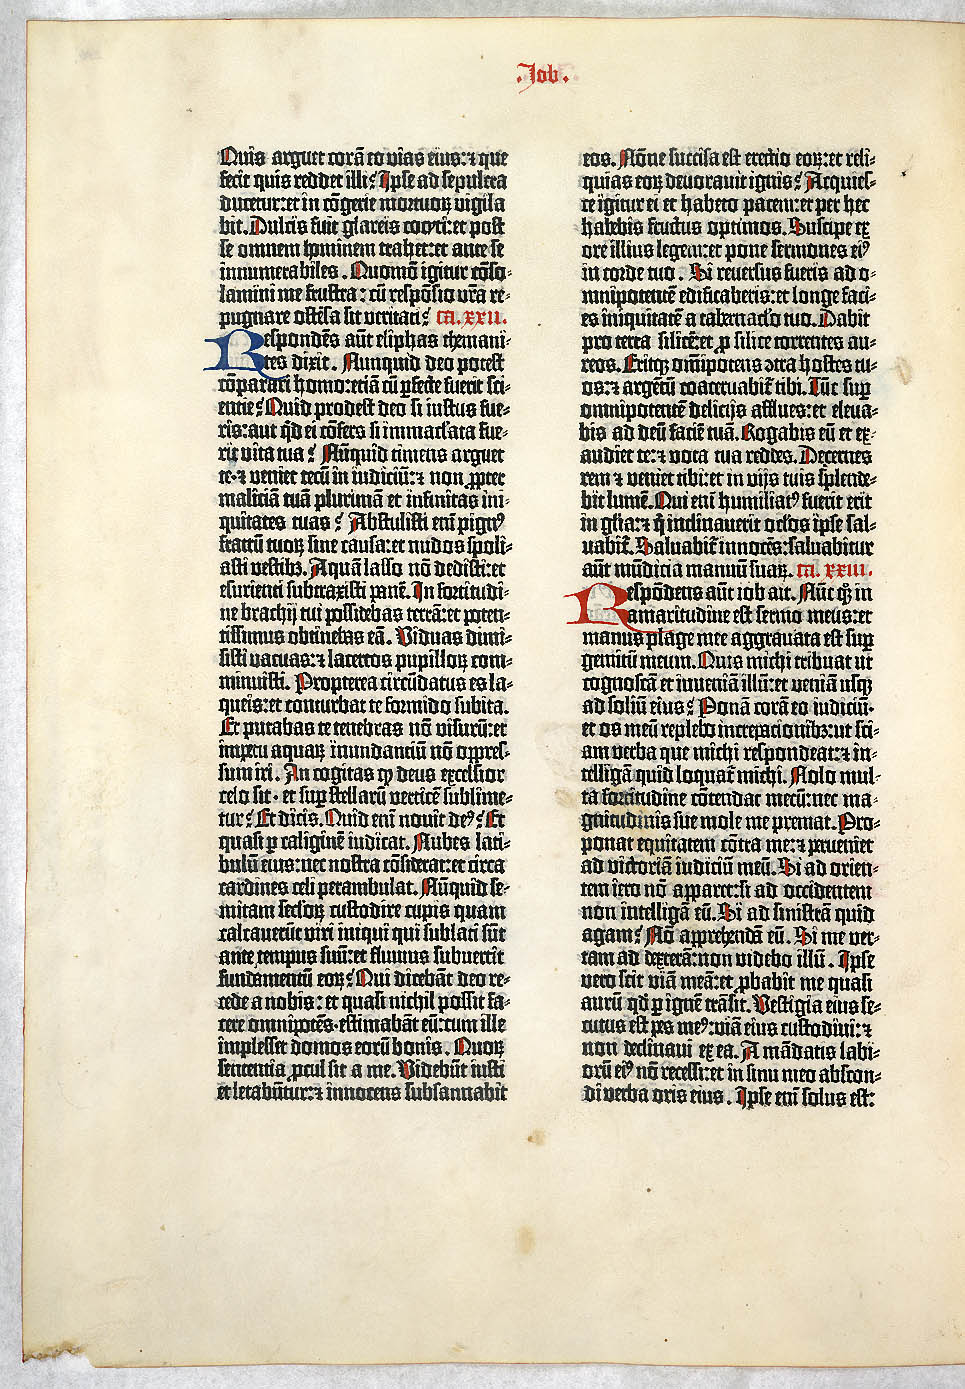 .Job.
Quis arguet corã eo vias eius: ⁊ que
fecit quis reddet illi? Ipse ad sepulcra
ducetur: et in cõgerie mortuoꝝ vigila
bit. Dulcis fuit glareis cocyti: et post
se omnem hominem trahet: et ante se
innumerabiles. Quomõ igitur cõso-
lamini me frustra: cũ respõsio vr̃a re-
pugnare ostẽsa sit veritati? ca. xxii.
Respondẽs aũt eliphas themani-
tes dixit. Nunquid deo potest
cõparari homo: etiã cũ ꝑfecte fuerit sci-
entie? Quid prodest deo si iustus fue-
ris: aut qͥd ei cõfers si immaclata fue-
rit vita tua? Nũquid timens arguet
te· ⁊ veniet tecũ in iudiciũ: ⁊ non ꝓpter
maliciã tuã plurimã et infinitas ini-
quitates tuas? Abstulisti enĩ pignꝰ
fratrũ tuoꝝ sine causa: et nudos spoli-
asti vestibꝫ. Aquã lasso nõ dedisti: et
esurienti subtraxisti panẽ. In fortitudi-
ne brachij tui possidebas terrã: et poten-
tissimus obtinebas eã. Viduas dimi-
sisti vacuas: ⁊ lacertos pupilloꝝ com-
minuisti. Propterea circũdatus es la-
queis: et conturbat te formido subita.
Et putabas te tenebras nõ visurũ: et
impetu aquaꝝ inundanciũ nõ oppres-
sum iri. An cogitas ꝙ deus excelsior
celo sit· et suꝑ stellarũ verticẽ sublime-
tur? Et dicis. Quid enĩ novit deꝰ? Et
quasi ꝑ caliginẽ iudicat. Nubes lati-
bulũ eius: nec nostra cõsiderat: et circa
cardines celi perambulat. Nũquid se-
mitam secloꝝ custodire cupis quam
calcaverũt viri iniqui qui sublati sũt
ante tempus suũ: et fluvius subvertit
fundamentũ eoꝝ? Qui dicebãt deo re-
cede a nobis: et quasi nichil possit fa-
cere omnipotẽs· estimabãt eũ: cum ille
implesset domos eorũ bonis. Quoꝝ
sententia ꝓcul sit a me. Videbũt iusti
et letabũtur: ⁊ innocens subsannabit
eos. Nõne succisa est erectio eoꝝ: et reli-
quias eoꝝ devoravit ignis? Acquies-
ce igitur ei et habeto pacem: et per hec
habebis fructus optimos. Suscipe ex
ore illius legem: et pone sermones eiꝰ
in corde tuo. Si reversus fueris ad o-
mnipotentẽ edificaberis: et longe faci-
es iniquitatẽ a tabernaclo tuo. Dabit
pro terra silicẽ: et ꝓ silice torrentes au-
reos. Eritqꝫ om̃ipotens ↄtra hostes tu-
os: ⁊ argẽtũ coacervabit᷑ tibi. Tũc suꝑ
omnipotentẽ delicijs afflues: et eleva-
bis ad deũ faciẽ tuã. Rogabis eũ et ex-
audiet te: ⁊ vota tua reddes. Decernes
rem ⁊ veniet tibi: et in vijs tuis splende-
bit lumẽ. Qui enĩ humiliatꝰ fuerit erit
in gľia: ⁊ qͥ inclinaverit oclos ipse sal-
vabit᷑. Salvabit᷑ innocẽs: salvabitur
aũt mũdicia manuũ suaꝝ. ca. xxiii.
Respõdens aũt iob ait. Nũc qꝫ in
amaritudine est sermo meus: et
manus plage mee aggravata est suꝑ
gemitũ meum. Quis michi tribuat ut
cognoscã et inveniã illũ: et veniã usqꝫ
ad soliũ eius? Ponã corã eo iudiciũ·
et os meũ replebo increpacionibꝫ: ut sci-
am verba que michi respondeat: ⁊ in-
telligã quid loquat᷑ michi. Nolo mul-
ta fortitudine cõtendat mecũ: nec ma-
gnitudinis sue mole me premat. Pro-
ponat equitatem cõtra me: ⁊ perveniet
ad victoriã iudiciũ meũ. Si ad orien-
tem iero nõ apparet: si ad occidentem
non intelligã eũ. Si ad sinistrã quid
agam? Nõ apprehendã eũ. Si me ver-
tam ad dexterã: non videbo illũ. Ipse
vero scit viã meã: et ꝓbabit me quasi
aurũ qd̓ ꝑ ignẽ trãsit. Vestigia eius se-
cutus est pes meꝰ: viã eius custodivi: ⁊
non declinavi ex ea. A mãdatis labi-
orũ eiꝰ nõ recessi: et in sinu meo abscon-
di verba oris eius. Ipse enĩ solus est: